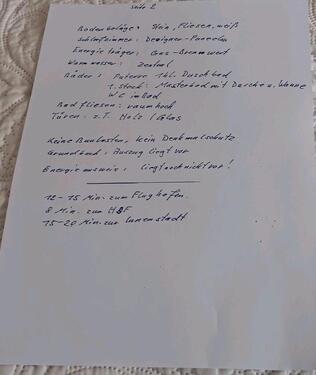 Seite 2
Bodenbeläge: Stein, Fliesen, weiß
Schlafzimmer: Designer-Paneelen
Energieträger: Gas-Brennwert
Warmwasser: Zentral
Bäder: Paterre 1 kl. Duschbad
1. Stock: Masterbad mit Dusche u. Wanne
WC im Bad
Badfliesen: raumhoch
Türen: z.T. Holz / Glas
Keine Baulasten, kein Denkmalschutz
Grundbuch: Auszug liegt vor
Energieausweis: liegt noch nicht vor!
12-15 Min. zum Flughafen.
8 Min. zum HBF
15-20 Min. zur Innenstadt